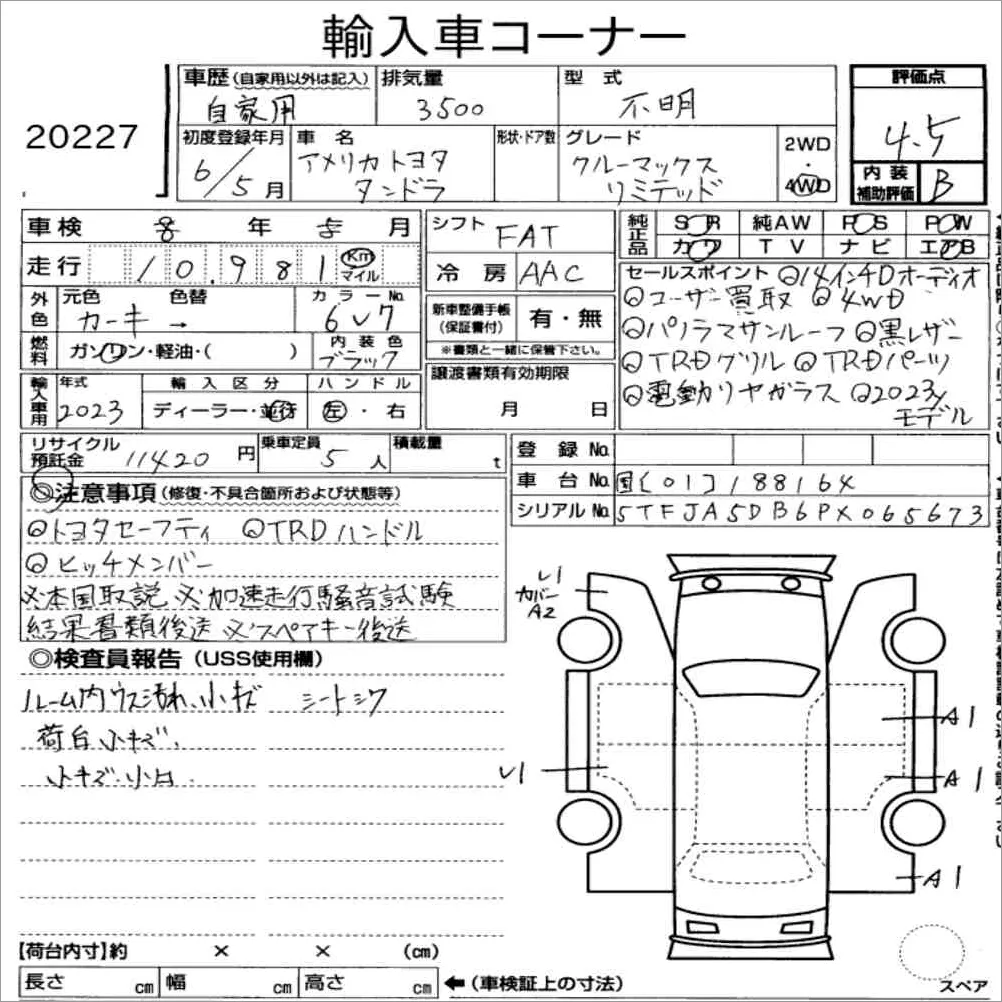 輸入車コーナー
20227
車歴(自家用以外は記入) 自家用
排気量 3500
型式 不明
評価点 4.5
初度登録年月 6/5月
車名 アメリカトヨタ タンドラ
形状・ドア数
グレード クルーマックス リミテッド
2WD・4WD
内装補助評価 B
車検 8年5月
走行 10,981 Km マイル
シフト FAT
冷房 AAC
純正品 SR 純AW PS PW
カワ TV ナビ エアB
外色 元色 カーキ → 色替
カラーNo. 6V7
燃料 ガソリン・軽油・( )
内装色 ブラック
新車整備手帳(保証書付) 有・無
※書類と一緒に保管下さい。
セールスポイント ◎14インチDオーディオ
◎ユーザー買取 ◎4WD
◎パノラマサンルーフ ◎黒レザー
◎TRDグリル ◎TRDパーツ
◎電動リヤガラス ◎2023y
モデル
輸入車用 年式 2023
輸入区分 ディーラー・並行
ハンドル 左・右
譲渡書類有効期限 月 日
リサイクル預託金 11420円
乗車定員 5人
積載量 t
登録No.
車台No. 国[01]188164
シリアルNo. 5TFJA5DB6PX065673
◎注意事項(修復・不具合箇所および状態等)
◎トヨタセーフティ ◎TRDハンドル
◎ヒッチメンバー
※本国取説 ※加速走行騒音試験
結果書類後送 ※スペアキー後送
◎検査員報告(USS使用欄)
ルーム内ウス汚れ、小キズ シートシワ
荷台小キズ、
小キズ・小凹
U1
カバー
A2
A1
U1
A1
A1
【荷台内寸】約 × × (cm)
長さ cm 幅 cm 高さ cm ←(車検証上の寸法)
スペア